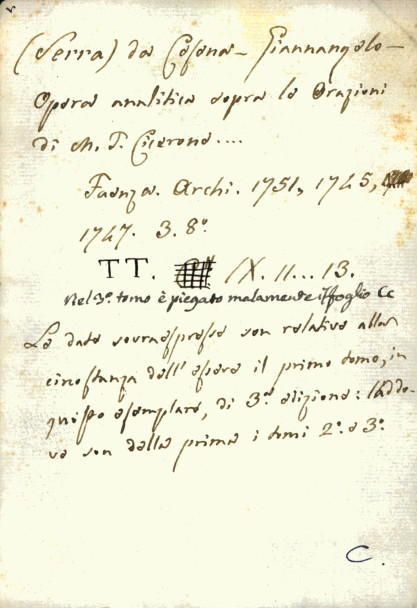 (Serra) da Cesena — Giannangelo —
Opera analitica sopra le Orazioni
di M. T. Cicerone....
Faenza. Archi. 1751, 1745,
1747. 3. 8.º
TT. IX. 11...13.
Nel 3º. tomo è piegato malamente il foglio Cc
Le date sovraespresse son relative alla
circostanza dell'essere il primo tomo, in
questo esemplare, di 3.ª edizione: laddo-
ve son della prima i tomi 2º. e 3º.
C.